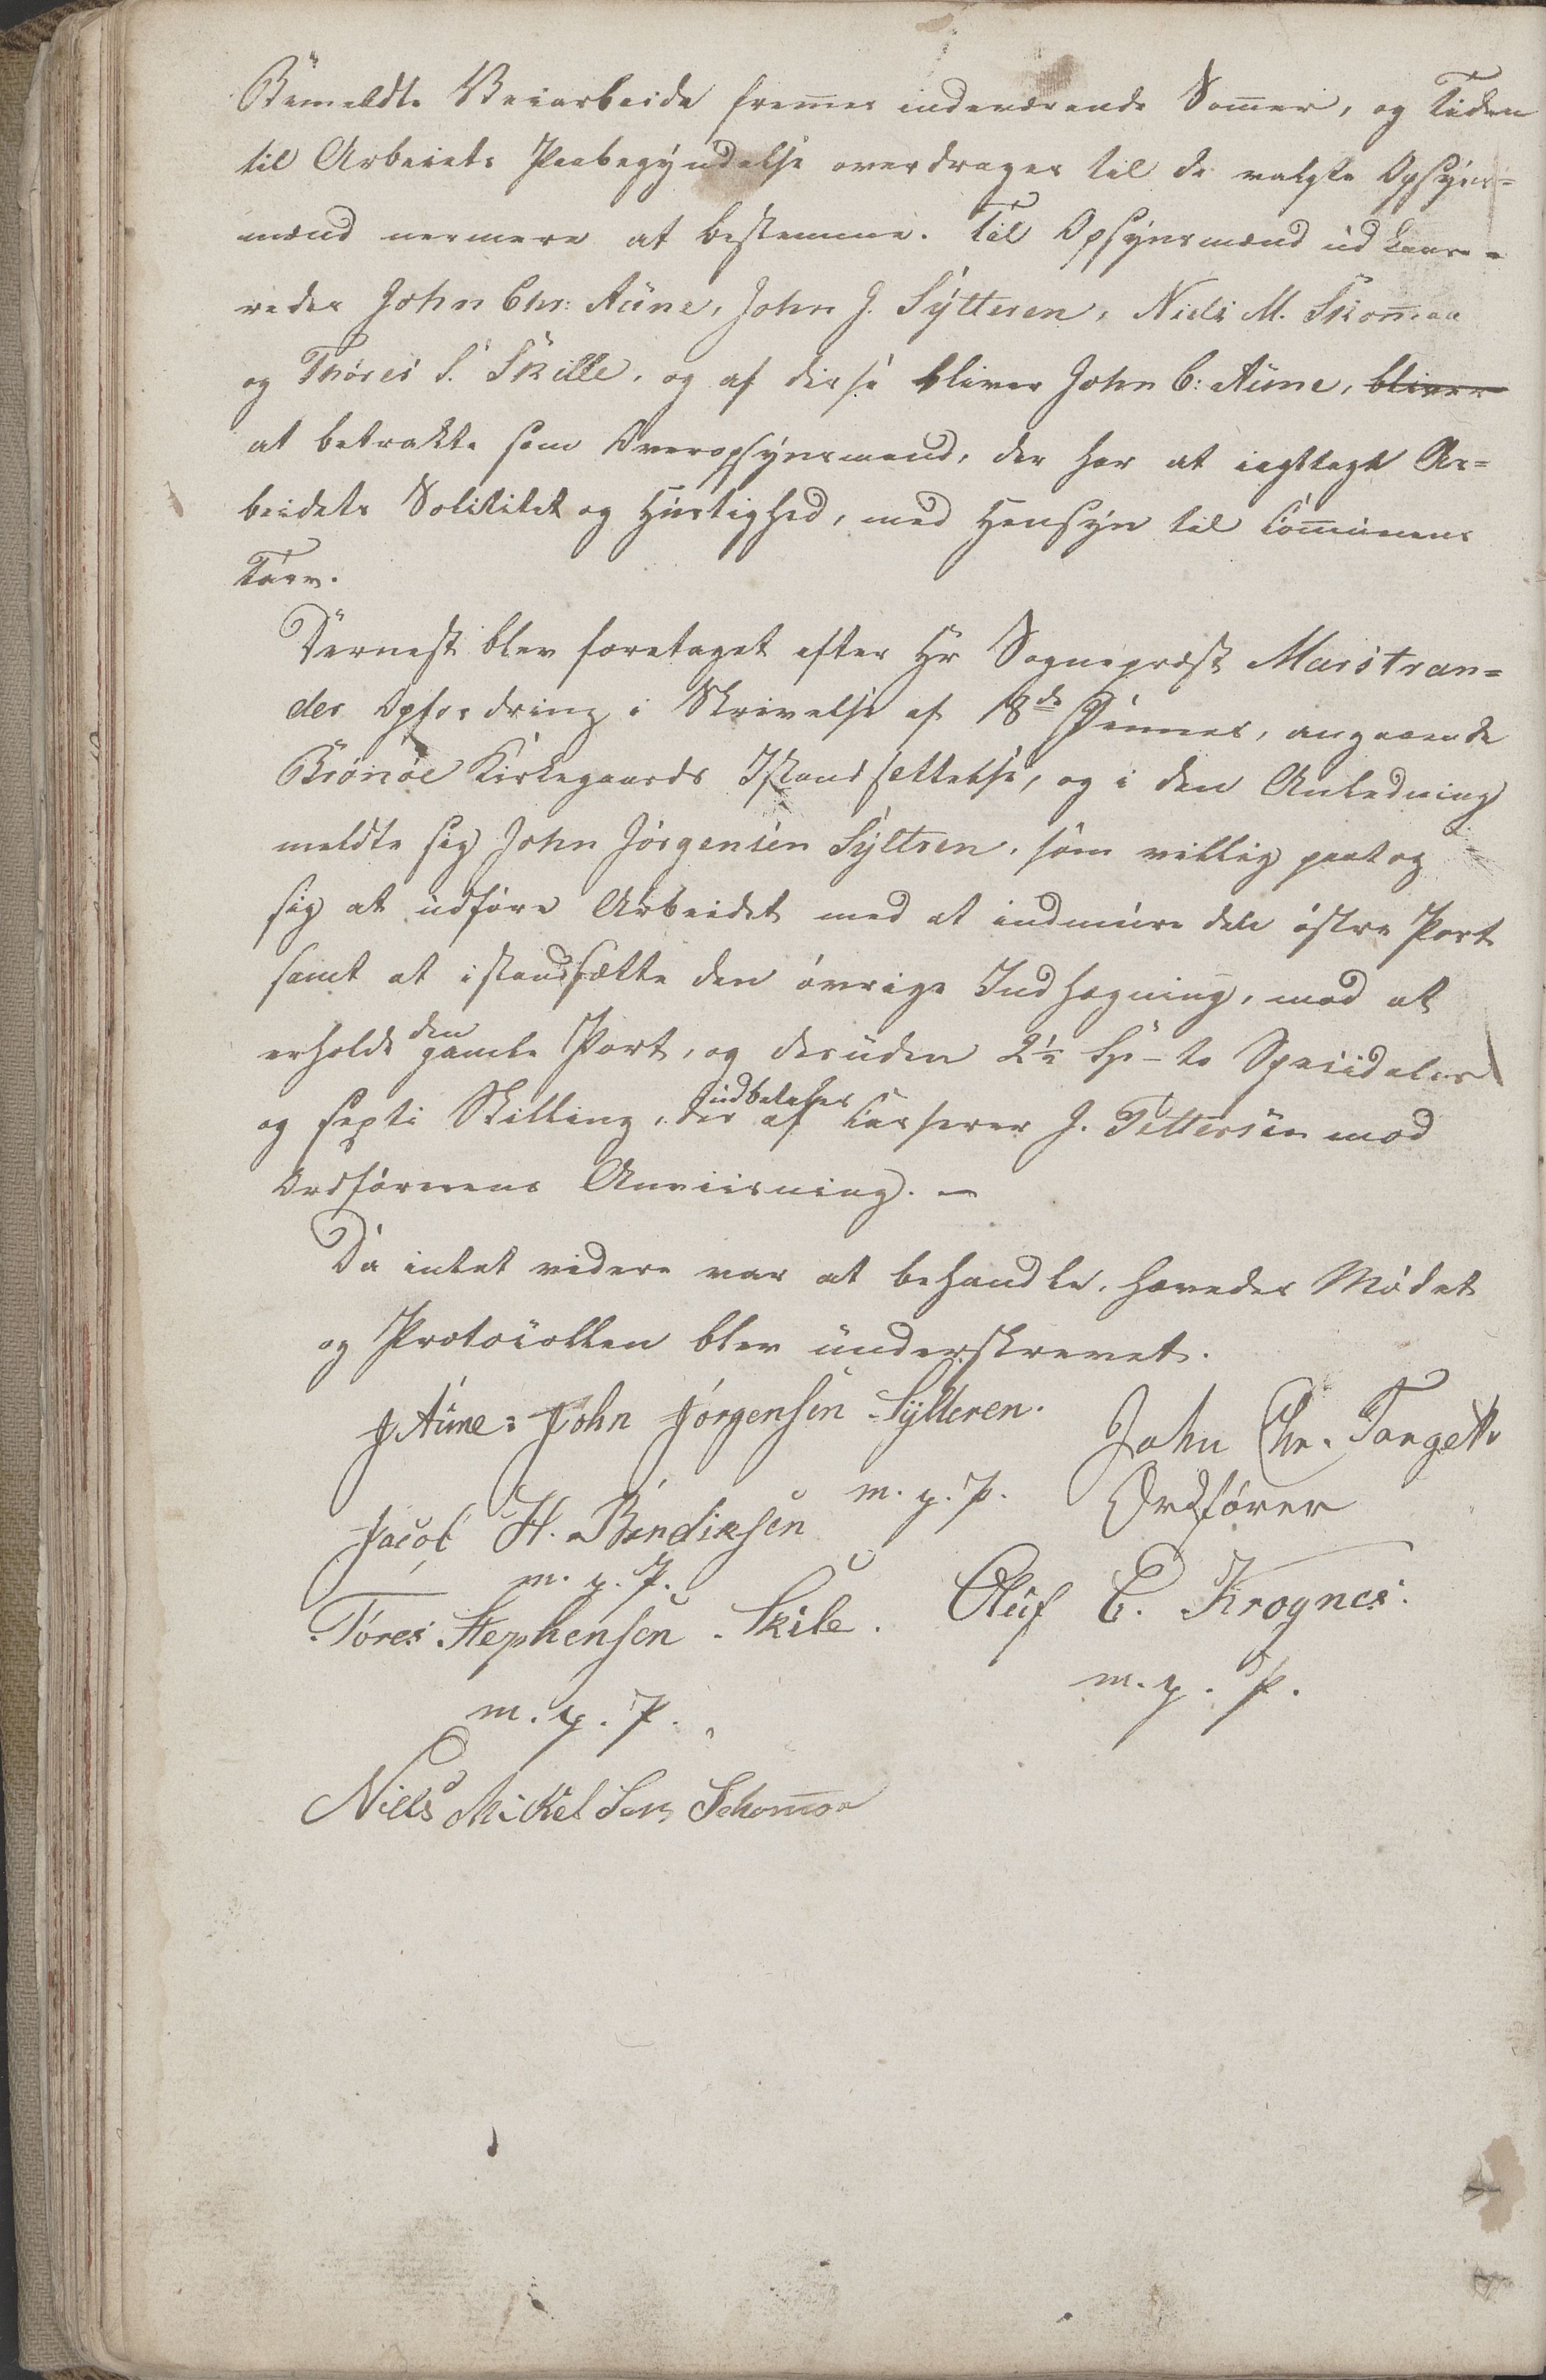 Bemeldte Veiarbeide fremes indeværende Somer, og Tiden
til Arbeiets Paabegyndelse overdrages til de valgte Opsyns=
mænd nermere at bestemme. Til Opsynsmænd udkaare-
redes John Chr: Aune, John J. Sylteren, Niels M. Skomoa
og Thores S. Skille, og af disse bliver John C: Aune, bliver
at betrakte som Overopsynsmand, der har at iagttage Ar=
beidets Solititet og Hurtighed, med Hensyn til Comunens
Tarv.
Dernæst blev foretaget efter Hr Sognepræst Marstran=
des Opfordring i Skrivelse af 18de Dennes, angaaende
Brønøe Kirkegaards Istandsættelse, og i den Anledning
meldte sig John Jørgensen Syltren, som villig paatog
sig at udføre Arbeidet med at indmure den østre Port
samt at istandsætte den øvrige Indhægning, mod at
erholde den gamle Port, og desuden 2½ Sp - to Speciedaler
og sexti Skilling, der udbetales af Casserer J. Tettersen mod
Ordførerens Anviisning. -
Da intet videre var at behandle, hævedes Mødet
og Protocollen blev underskrevet.
J Aune: John Jørgensen Sylteren. John Chr. Targett
m. p. P. Ordfører
Jacob H. Bendiksen
m. p. P.
Tøres Stephensen Skile. Oluf C. Krognes.
m. p. P. m. p. P.
Niells Mikel Sen Schomoa